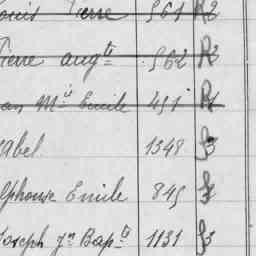 Louis Pierre 561 R2
Pierre augte 562 R2
Mie Emile 491 R1
abel 1348
lphonse Emile 845
Joseph jn Bapte 1131 S3